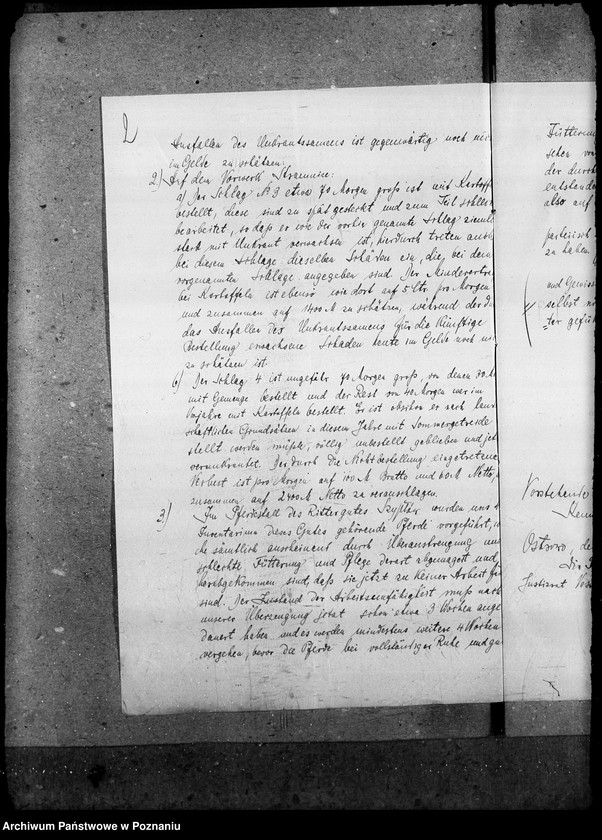 2
Ausfallen des Unkrautsamens ist gegenwärtig noch nic
im Gelde zu schätzen.
2) Auf dem Vorwerk
a) Der Schlag № 3 etwa 70 Morgen groß ist mit Kartoff
bestellt, diese sind zu spät gesteckt und zum Teil schlec
bearbeitet, so daß er wie der vorhin genannte Schlag zieml
stark mit Unkraut verwachsen ist, hierdurch treten auch
bei diesem Schlage dieselben Schäden ein, die, bei dem
vorgenannten Schlage angegeben sind. Der Minderertra
bei Kartoffeln ist ebenso wie dort auf 5 Ctr. pro Morgen
und zusammen auf 1400 M zu schätzen, während der du
das Ausfallen des Unkrautsamens für die künftige
Bestellung erwachsene Schaden heute im Gelde noch ni
zu schätzen ist.
b) Der Schlag 4 ist ungefähr 70 Morgen groß, von denen 30 M
mit Gemenge bestellt und der Rest von 40 Morgen war im
Vorjahre mit Kartoffeln bestellt. Er ist obschon er nach land
schaftlichen Grundsätzen in diesem Jahre mit Sommergetreide
stellt werden müßte, völlig unbestellt geblieben und jet
verunkrautet. Der durch die Nichtbestellung eingetretene
Verlust ist pro Morgen auf 100 M Brutto und 60 M Netto,
zusammen auf 2400 M Netto zu veranschlagen.
3) Im Pferdestall des Rittergutes wurden uns
Inventarium dieses Gutes gehörende Pferde vorgeführt, w
che sämtlich anscheinend durch Überanstrengung und
schlechte Fütterung und Pflege derart abgemagert und
herabgekommen sind, daß sie jetzt zu keiner Arbeit fä
sind. Der Zustand der Arbeitsunfähigkeit muß nach
unserer Überzeugung jetzt schon etwa 3 Wochen ange
dauert haben und es werden mindestens weitere 4 Wochen
vergehen, bevor die Pferde bei vollständiger Ruhe und gu
Fütterun
schon vor
der durch
entstande
also auf
parteiisch
zu haben.
und Gewiss
selbst
ter gefü
Vorstehende
Ostrowo, de
Die
Justizrat
Archiwum Państwowe w Poznaniu